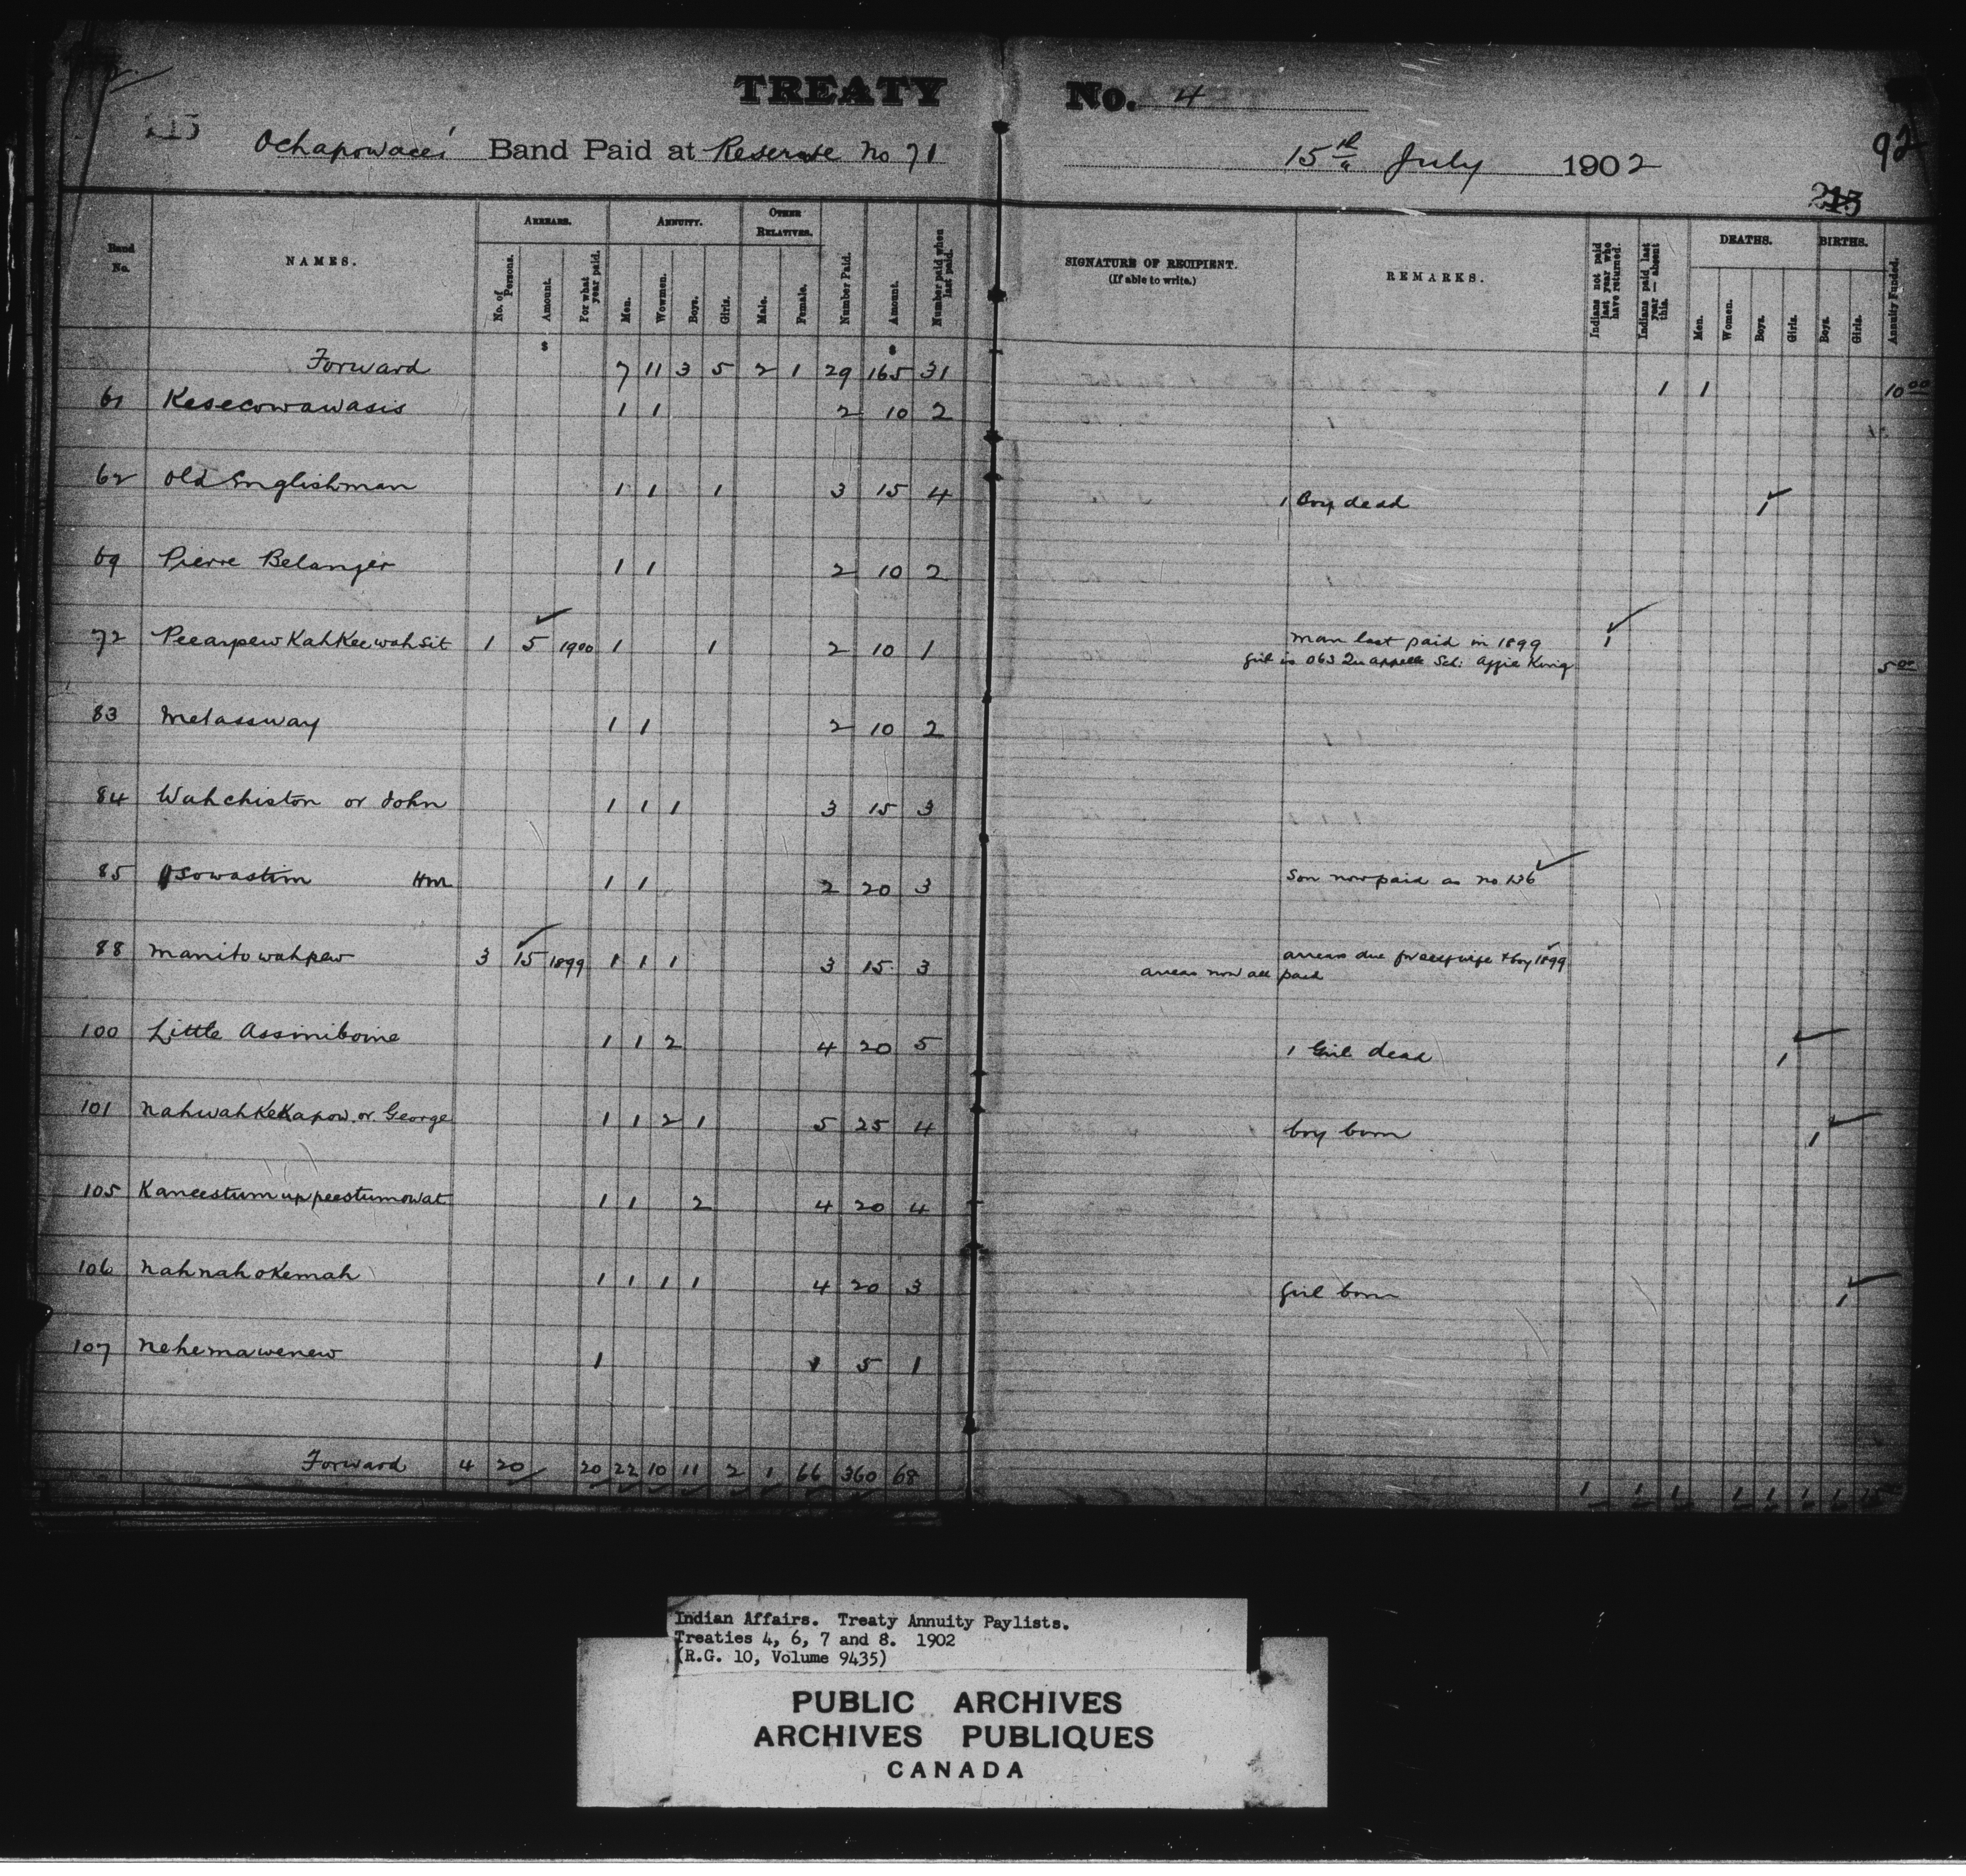 TREATY No. 4
215
92
Ochapowace's Band Paid at Reserve No 71 15th July 1902
215
Band No. NAMES. ARREARS. No. of Persons. Amount. For what year paid. ANNUITY. Men. Women. Boys. Girls. OTHER RELATIVES. Male. Female. Number Paid. Amount. Number paid when last paid. SIGNATURE OF RECIPIENT. (If able to write.) REMARKS. Indians not paid last year who have returned. Indians paid last year — absent this. DEATHS. Men. Women. Boys. Girls. BIRTHS. Boys. Girls. Annuity Funded.
$ $
Forward 7 11 3 5 2 1 29 165 31 1 1 10 00
61 Kesecowawasis 1 1 2 10 2
62 Old Englishman 1 1 1 3 15 4 1 Boy dead 1
69 Pierre Belanger 1 1 2 10 2
72 PeearpewKahKeewahsit 1 5 1900 1 1 2 10 1 man last paid in 1899 1
girl is 063 Qu'appelle Sch: Aggie King 5 00
83 Metassway 1 1 2 10 2
84 Wahchiston or John 1 1 1 3 15 3
85 Osowastim Hm 1 1 2 20 3 Son now paid as no 136
88 Manitowahpew 3 15 1899 1 1 1 3 15 3 arrears due for self wife & boy 1899
arrears now all paid
100 Little Assiniboine 1 1 2 4 20 5 1 Girl dead 1
101 NahwahKeKapow or George 1 1 2 1 5 25 4 boy born 1
105 Kaneestumuppeestumowat 1 1 2 4 20 4
106 NahnahoKemah 1 1 1 1 4 20 3 girl born 1
107 Nehemawenew 1 1 5 1
Forward 4 20 20 22 10 11 2 1 66 360 68 1 1 1 1 1 1 1 15
Indian Affairs. Treaty Annuity Paylists.
Treaties 4, 6, 7 and 8. 1902
(R.G. 10, Volume 9435)
PUBLIC ARCHIVES
ARCHIVES PUBLIQUES
CANADA